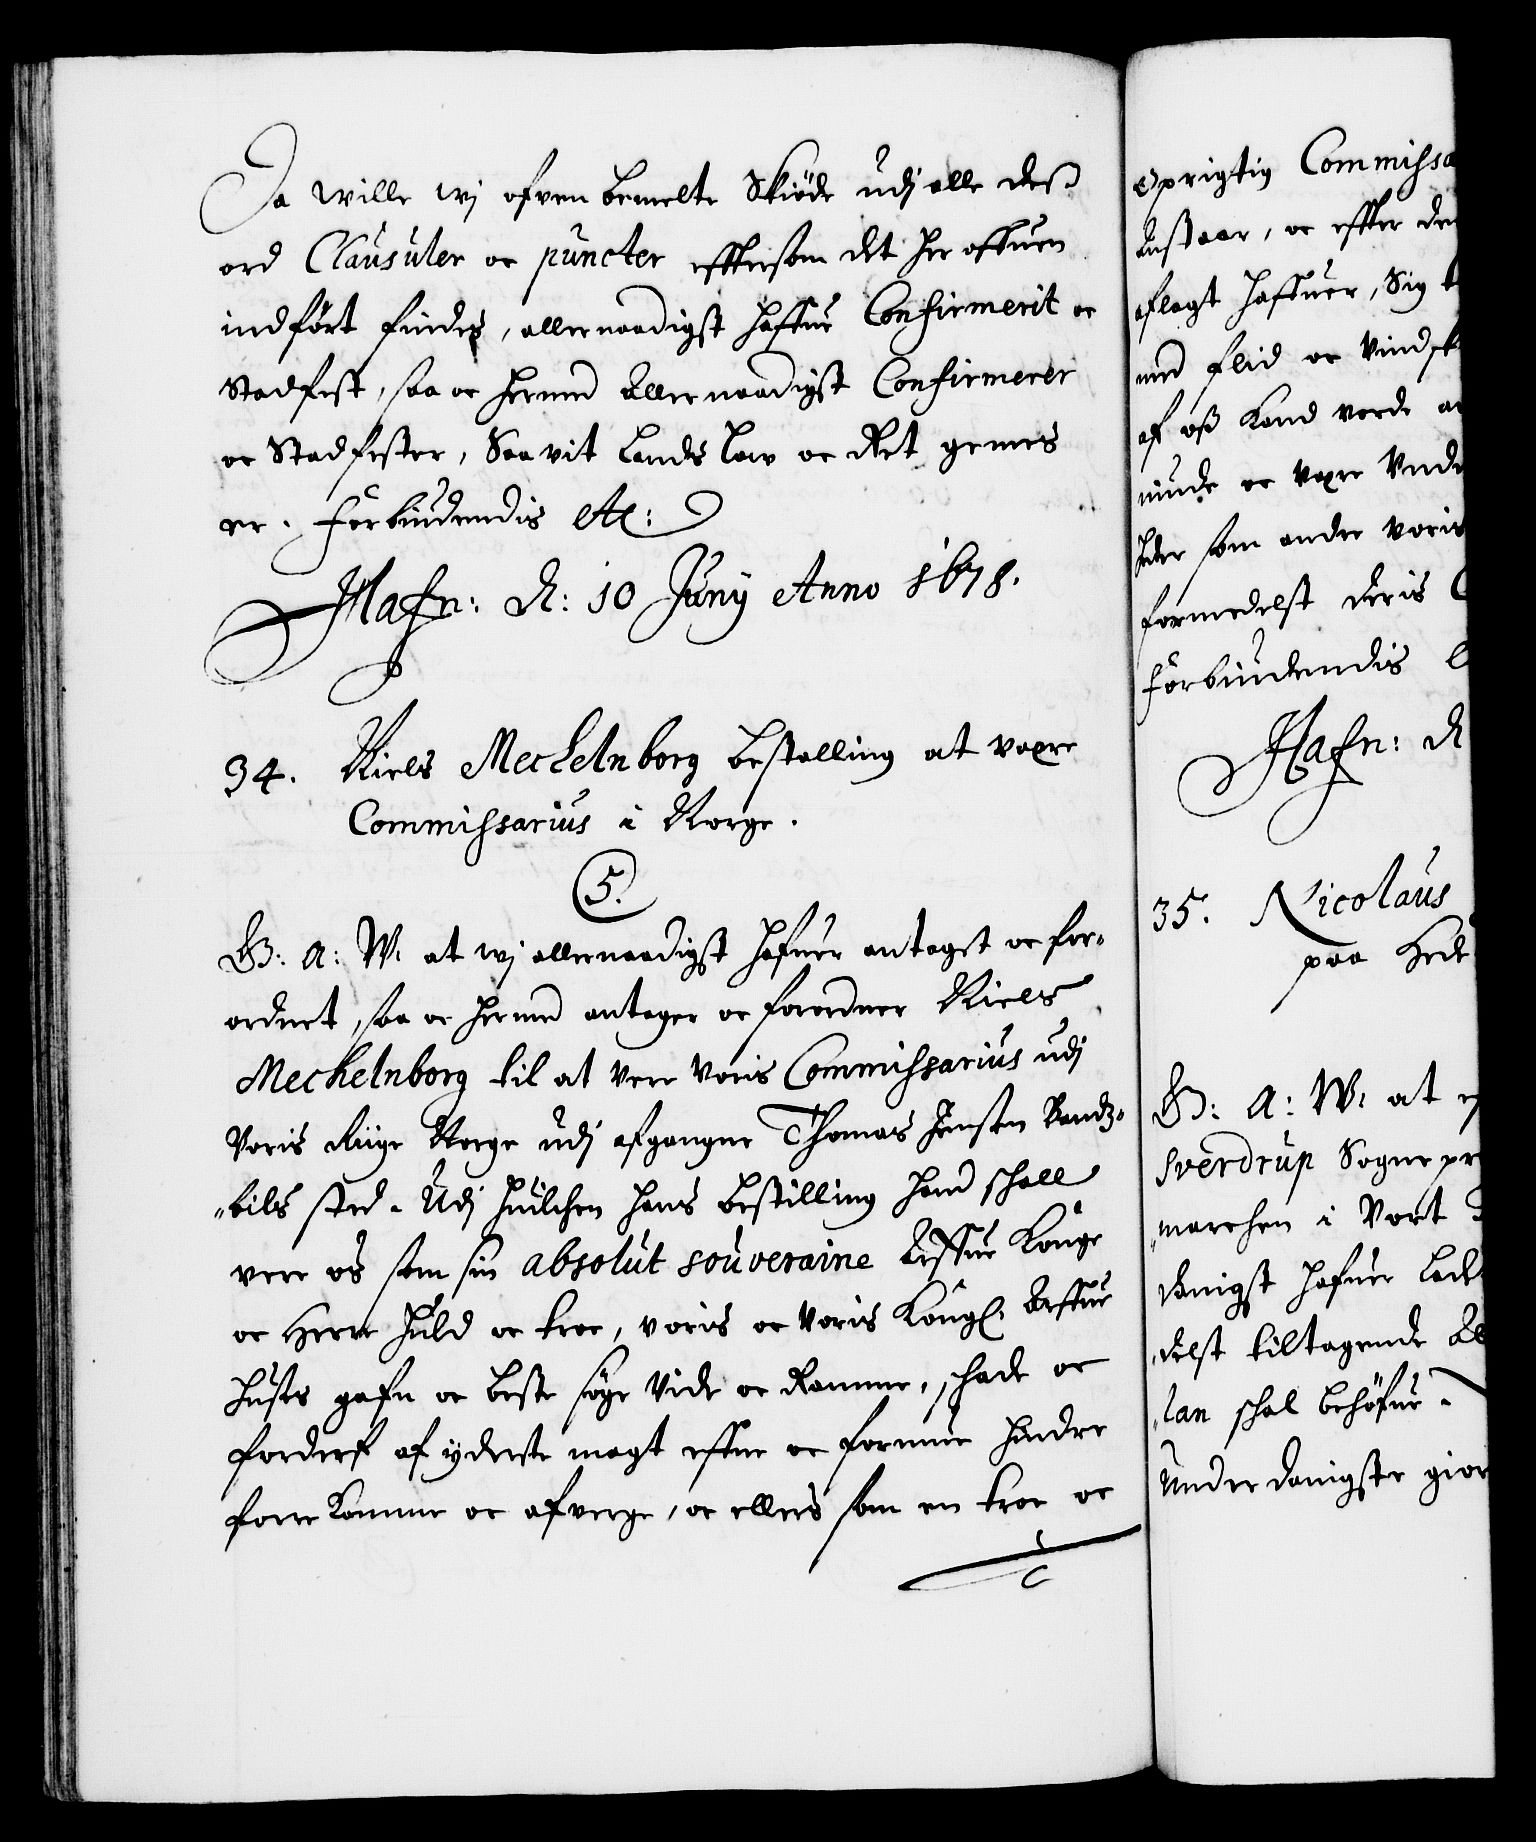 Da Wille Wj ofven bemelte Skiöde udj alle dess
ord Clausuler oc puncter effter som det her offuen
indfört findes, allernaadigst haffue Confirmerit oc
Stadfest, saa oc hermed Allernaadigst Confirmerer
oc Stadfester, Saavit Lands Low oc Ret gemes
er. Forbiudendis etc:
Hafn: d: 10 Juny Anno 1678.
34. Niels Mechelnborg bestalling at være
Commissarius i Norge.
5.
G: A: W: at wj allernaadigst hafuer antaget oc for-
ordnet, saa oc hermed antager oc forordner Niels
Mechelnborg til at vere Voris Commissarius udj
Voris Riige Norge udj afgangne Thomas Jensen Randz-
bils sted. Udj huilchen hans bestilling hand schall
vere os som sin absolut souveraine Arffue Konge
oc Herre huld oc troe, voris oc Voris Kongl. Arffue
huses gafn oc beste söge Vide oc Ramme, schade oc
forderf af yderste magt effne oc formue hindre
forre Komme oc afverge, oc ellers som en troe oc
oprigtig Commissa
Anstaar, oc effter den
aflagt haffuer, Sig
med flid oc Vindsk
af oss Kand vorde
niude oc være Unde
heder som andre voris
formedelst deris
Forbiudendis
Hafn: d
35. Nicolaus
paa Hede
G: A: W: at
Sverdrup Sognepr
marchen i Vort
danigst hafuer lade
delst tiltagende Al
lan schal behöfue.
Underdanigste gior